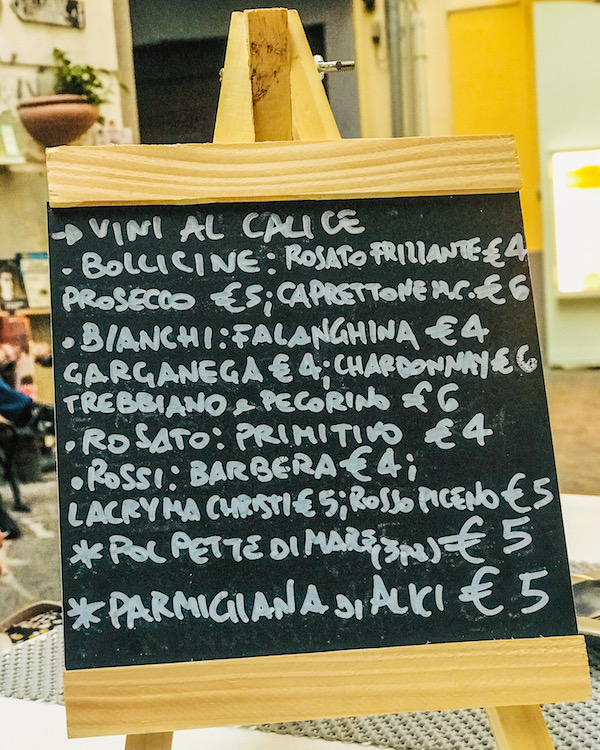 → VINI AL CALICE
• BOLLICINE: ROSATO FRIZZANTE € 4
PROSECCO €5; CAPRETTONE M.C. € 6
• BIANCHI: FALANGHINA € 4
GARGANEGA € 4; CHARDONNAY € 6
TREBBIANO & PECORINO € 6
• ROSATO: PRIMITIVO € 4
• ROSSI: BARBERA € 4;
LACRYMA CHRISTI € 5; ROSSO PICENO € 5
* POLPETTE DI MARE (3PZ) € 5
* PARMIGIANA DI ALICI € 5